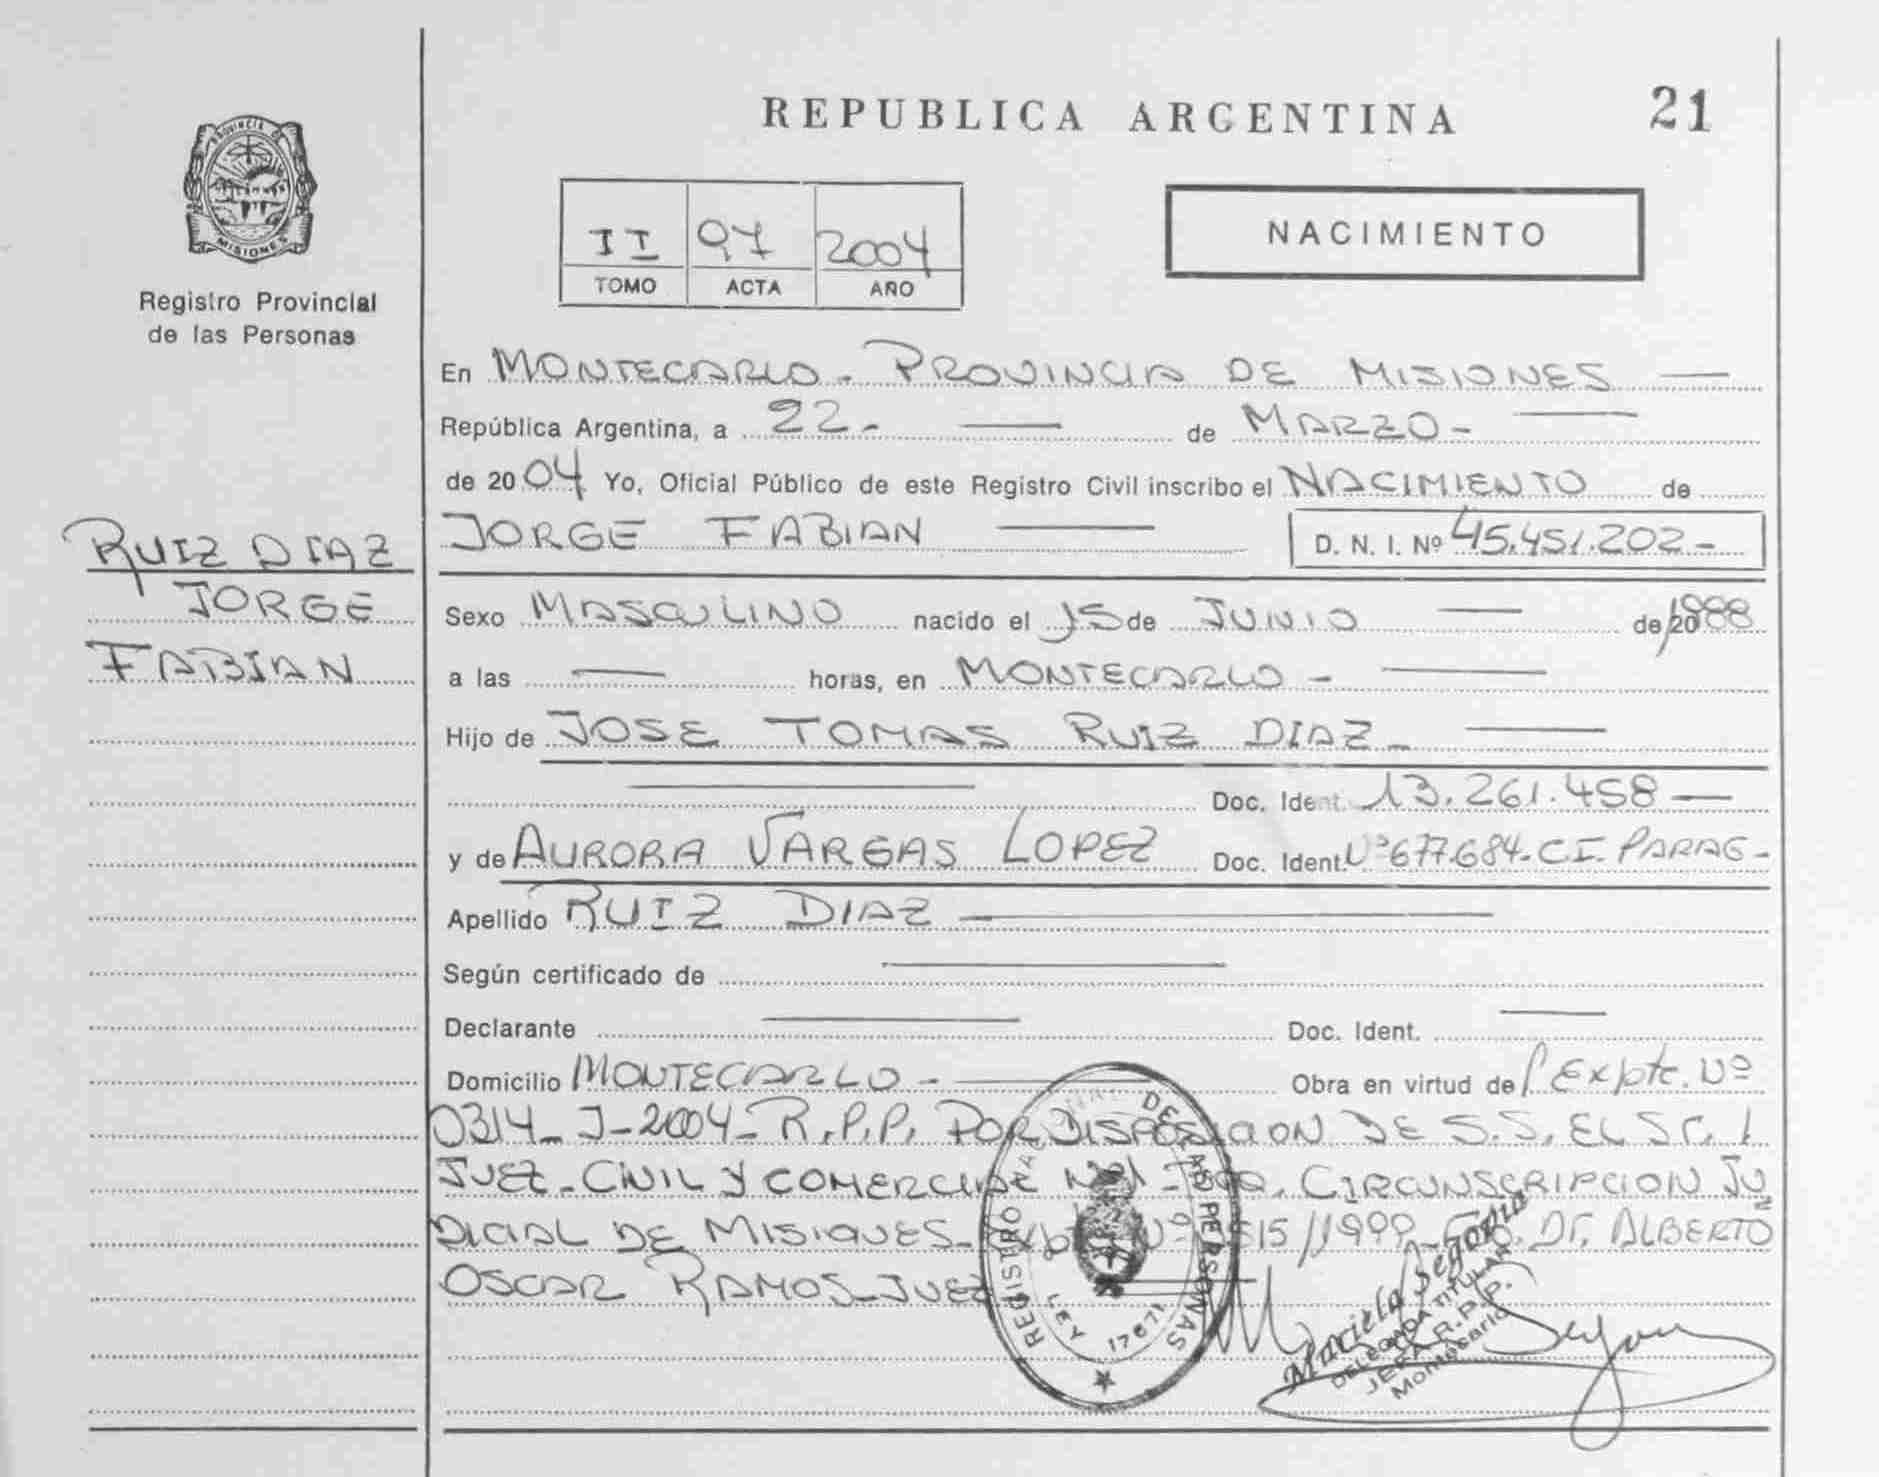 REPUBLICA ARGENTINA
21
PROVINCIA DE
MISIONES
Registro Provincial
de las Personas
II 97 2004
TOMO ACTA AÑO
NACIMIENTO
En MONTECARLO - PROVINCIA DE MISIONES
República Argentina, a 22 - de MARZO -
de 2004 Yo, Oficial Público de este Registro Civil inscribo el NACIMIENTO de
RUIZ DIAZ
JORGE
FABIAN
JORGE FABIAN D. N. I. Nº 45.451.202 -
Sexo MASCULINO nacido el 15 de JUNIO de/20 1988
a las horas, en MONTECARLO -
Hijo de JOSE TOMAS RUIZ DIAZ -
Doc. Ident. 13.261.458
y de AURORA VARGAS LOPEZ Doc. Ident. Nº 677.684 - C.I. PARAG -
Apellido RUIZ DIAZ
Según certificado de
Declarante Doc. Ident.
Domicilio MONTECARLO - Obra en virtud de Expte. Nº
0314 - J - 2004 - R.P.P. POR DISPOSICION DE S.S. EL Sr.
JUEZ - CIVIL Y COMERCIAL Nº1 CIRCUNSCRIPCION JU
DICIAL DE MISIONES - Nº 515/1999 - DR. ALBERTO
OSCAR RAMOS - JUEZ
REGISTRO NACIONAL DE LAS PERSONAS
LEY 17671
Mariela Segovia
DELEGADA TITULAR
JEFA R.P.P.
Montecarlo